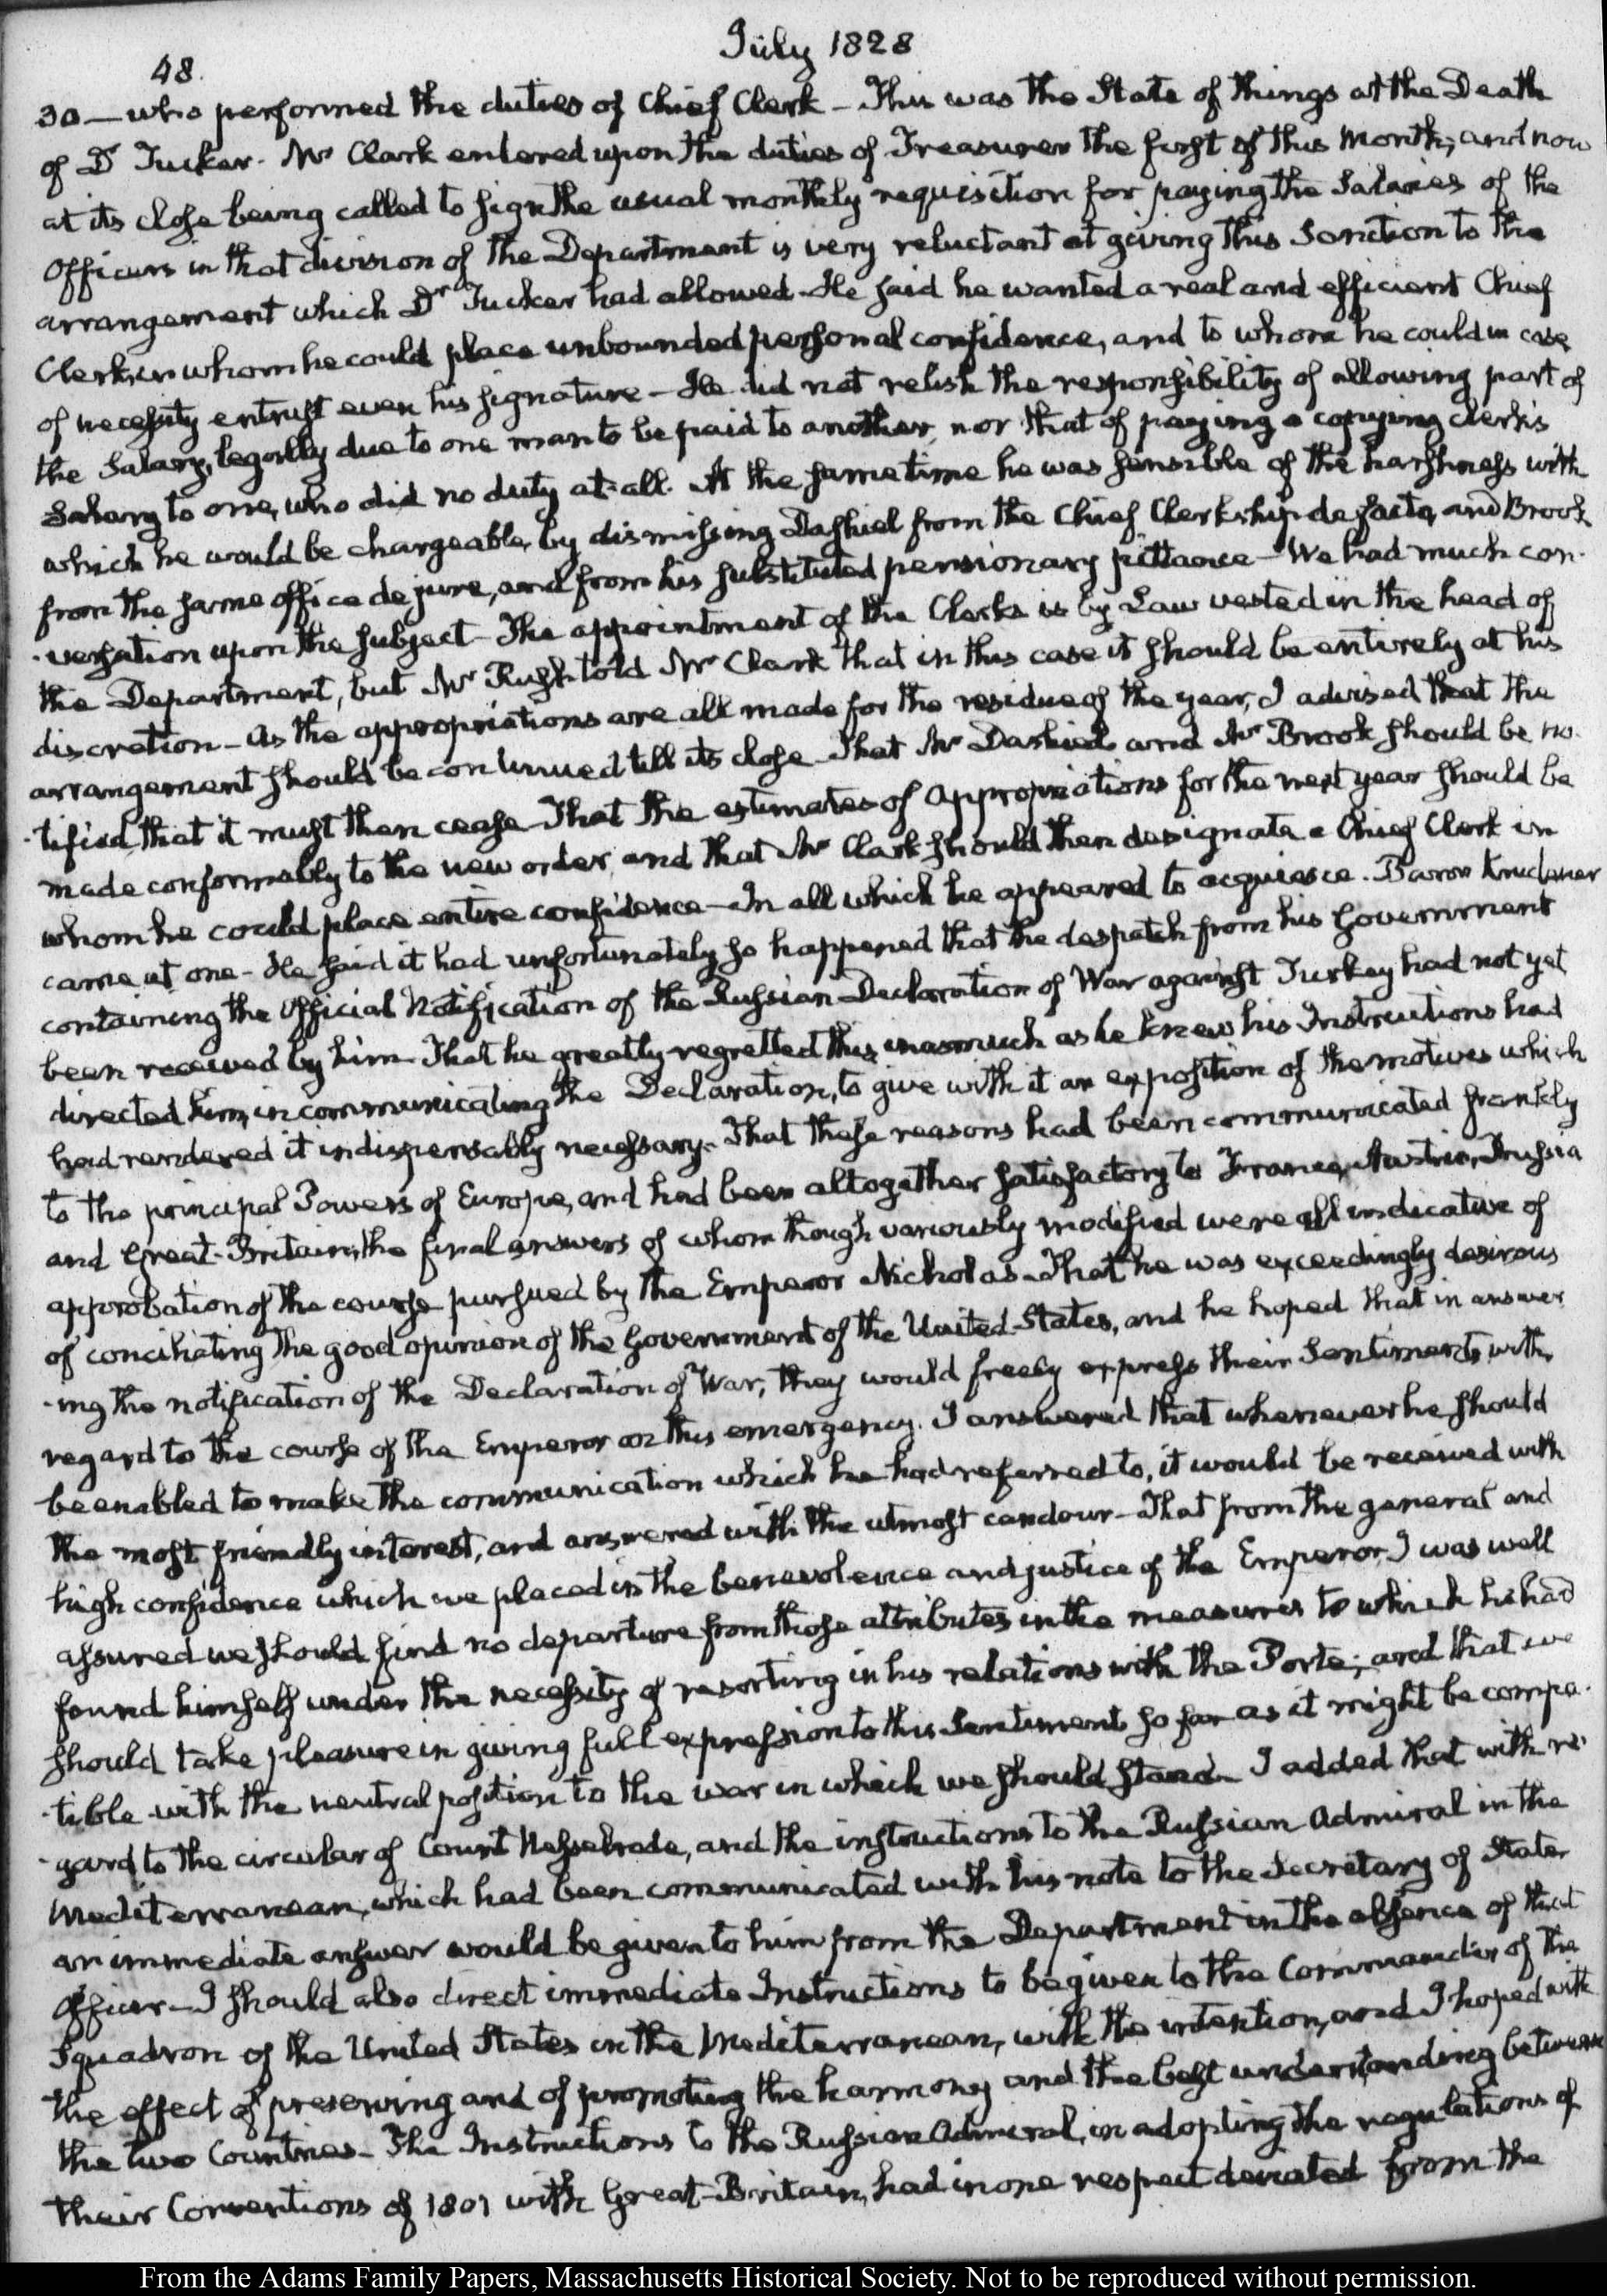 July 1828
48.
30 — who performed the duties of Chief Clerk – This was the State of things at the Death
of Dr Tucker. Mr Clark entered upon the duties of Treasurer the first of this Month; and now
at its close being called to sign the usual monthly requisition for paying the Salaries of the
Officers in that division of the Department is very reluctant at giving this Sanction to the
arrangement which Dr Tucker had allowed – He said he wanted a real and efficient Chief
Clerk, in whom he could place unbounded personal confidence, and to whom he could in case
of necessity entrust even his signature – He did not relish the responsibility of allowing part of
the Salary, legally due to one man to be paid to another, nor that of paying a copying clerk's
Salary to one, who did no duty at all. At the same time he was sensible of the harshness with
which he would be chargeable, by dismissing Dashiel from the Chief Clerkship de facto, and Brook
from the same office de jure, and from his substituted pensionary pittance – We had much con-
-versation upon the subject – The appointment of the Clerks is by Law vested in the head of
the Department, but Mr Rush told Mr Clark that in this case it should be entirely at his
discretion – As the appropriations are all made for the residue of the year, I advised that the
arrangement should be continued till its close – That Mr Dashiel and Mr Brook should be no-
-tified that it must then cease – That the estimates of appropriations for the next year should be
made conformably to the new order, and that Mr Clark should then designate a Chief Clerk in
whom he could place entire confidence – In all which he appeared to acquiesce. Baron Krudener
came at one – He said it had unfortunately so happened that the despatch from his Government
containing the Official Notification of the Russian Declaration of War against Turkey had not yet
been received by him – That he greatly regretted this, inasmuch as he knew his Instructions had
directed him, in communicating the Declaration, to give with it an exposition of the motives which
had rendered it indispensably necessary – That these reasons had been communicated frankly
to the principal Powers of Europe, and had been altogether satisfactory to France, Austria, Prussia
and Great-Britain, the final answers of whom though variously modified were all indicative of
approbation of the course pursued by the Emperor Nicholas – That he was exceedingly desirous
of conciliating the good opinion of the Government of the United States, and he hoped that in answer
-ing the notification of the Declaration of War, they would freely express their Sentiments with
regard to the course of the Emperor on this emergency. I answered that whenever he should
be enabled to make the communication which he had referred to, it would be received with
the most friendly interest, and answered with the utmost candour – That from the general and
high confidence which we placed in the benevolence and justice of the Emperor I was well
assured we should find no departure from those attributes in the measures to which he had
found himself under the necessity of resorting in his relations with the Porte; and that we
should take pleasure in giving full expression to this Sentiment so far as it might be compa-
-tible with the neutral position to the war in which we should stand – I added that with re-
-gard to the circular of Count Nesselrode, and the instructions to the Russian Admiral in the
Mediterranean, which had been communicated with his note to the Secretary of State
an immediate answer would be given to him from the Department in the absence of that
Officer – I should also direct immediate Instructions to be given to the Commander of the
Squadron of the United States in the Mediterranean, with the intention, and I hoped with
the effect of preserving and of promoting the harmony and the best understanding between
the two Countries – The Instructions to the Russian Admiral, in adopting the regulations of
their Conventions of 1801 with Great-Britain, had in one respect deviated from the
From the Adams Family Papers, Massachusetts Historical Society. Not to be reproduced without permission.